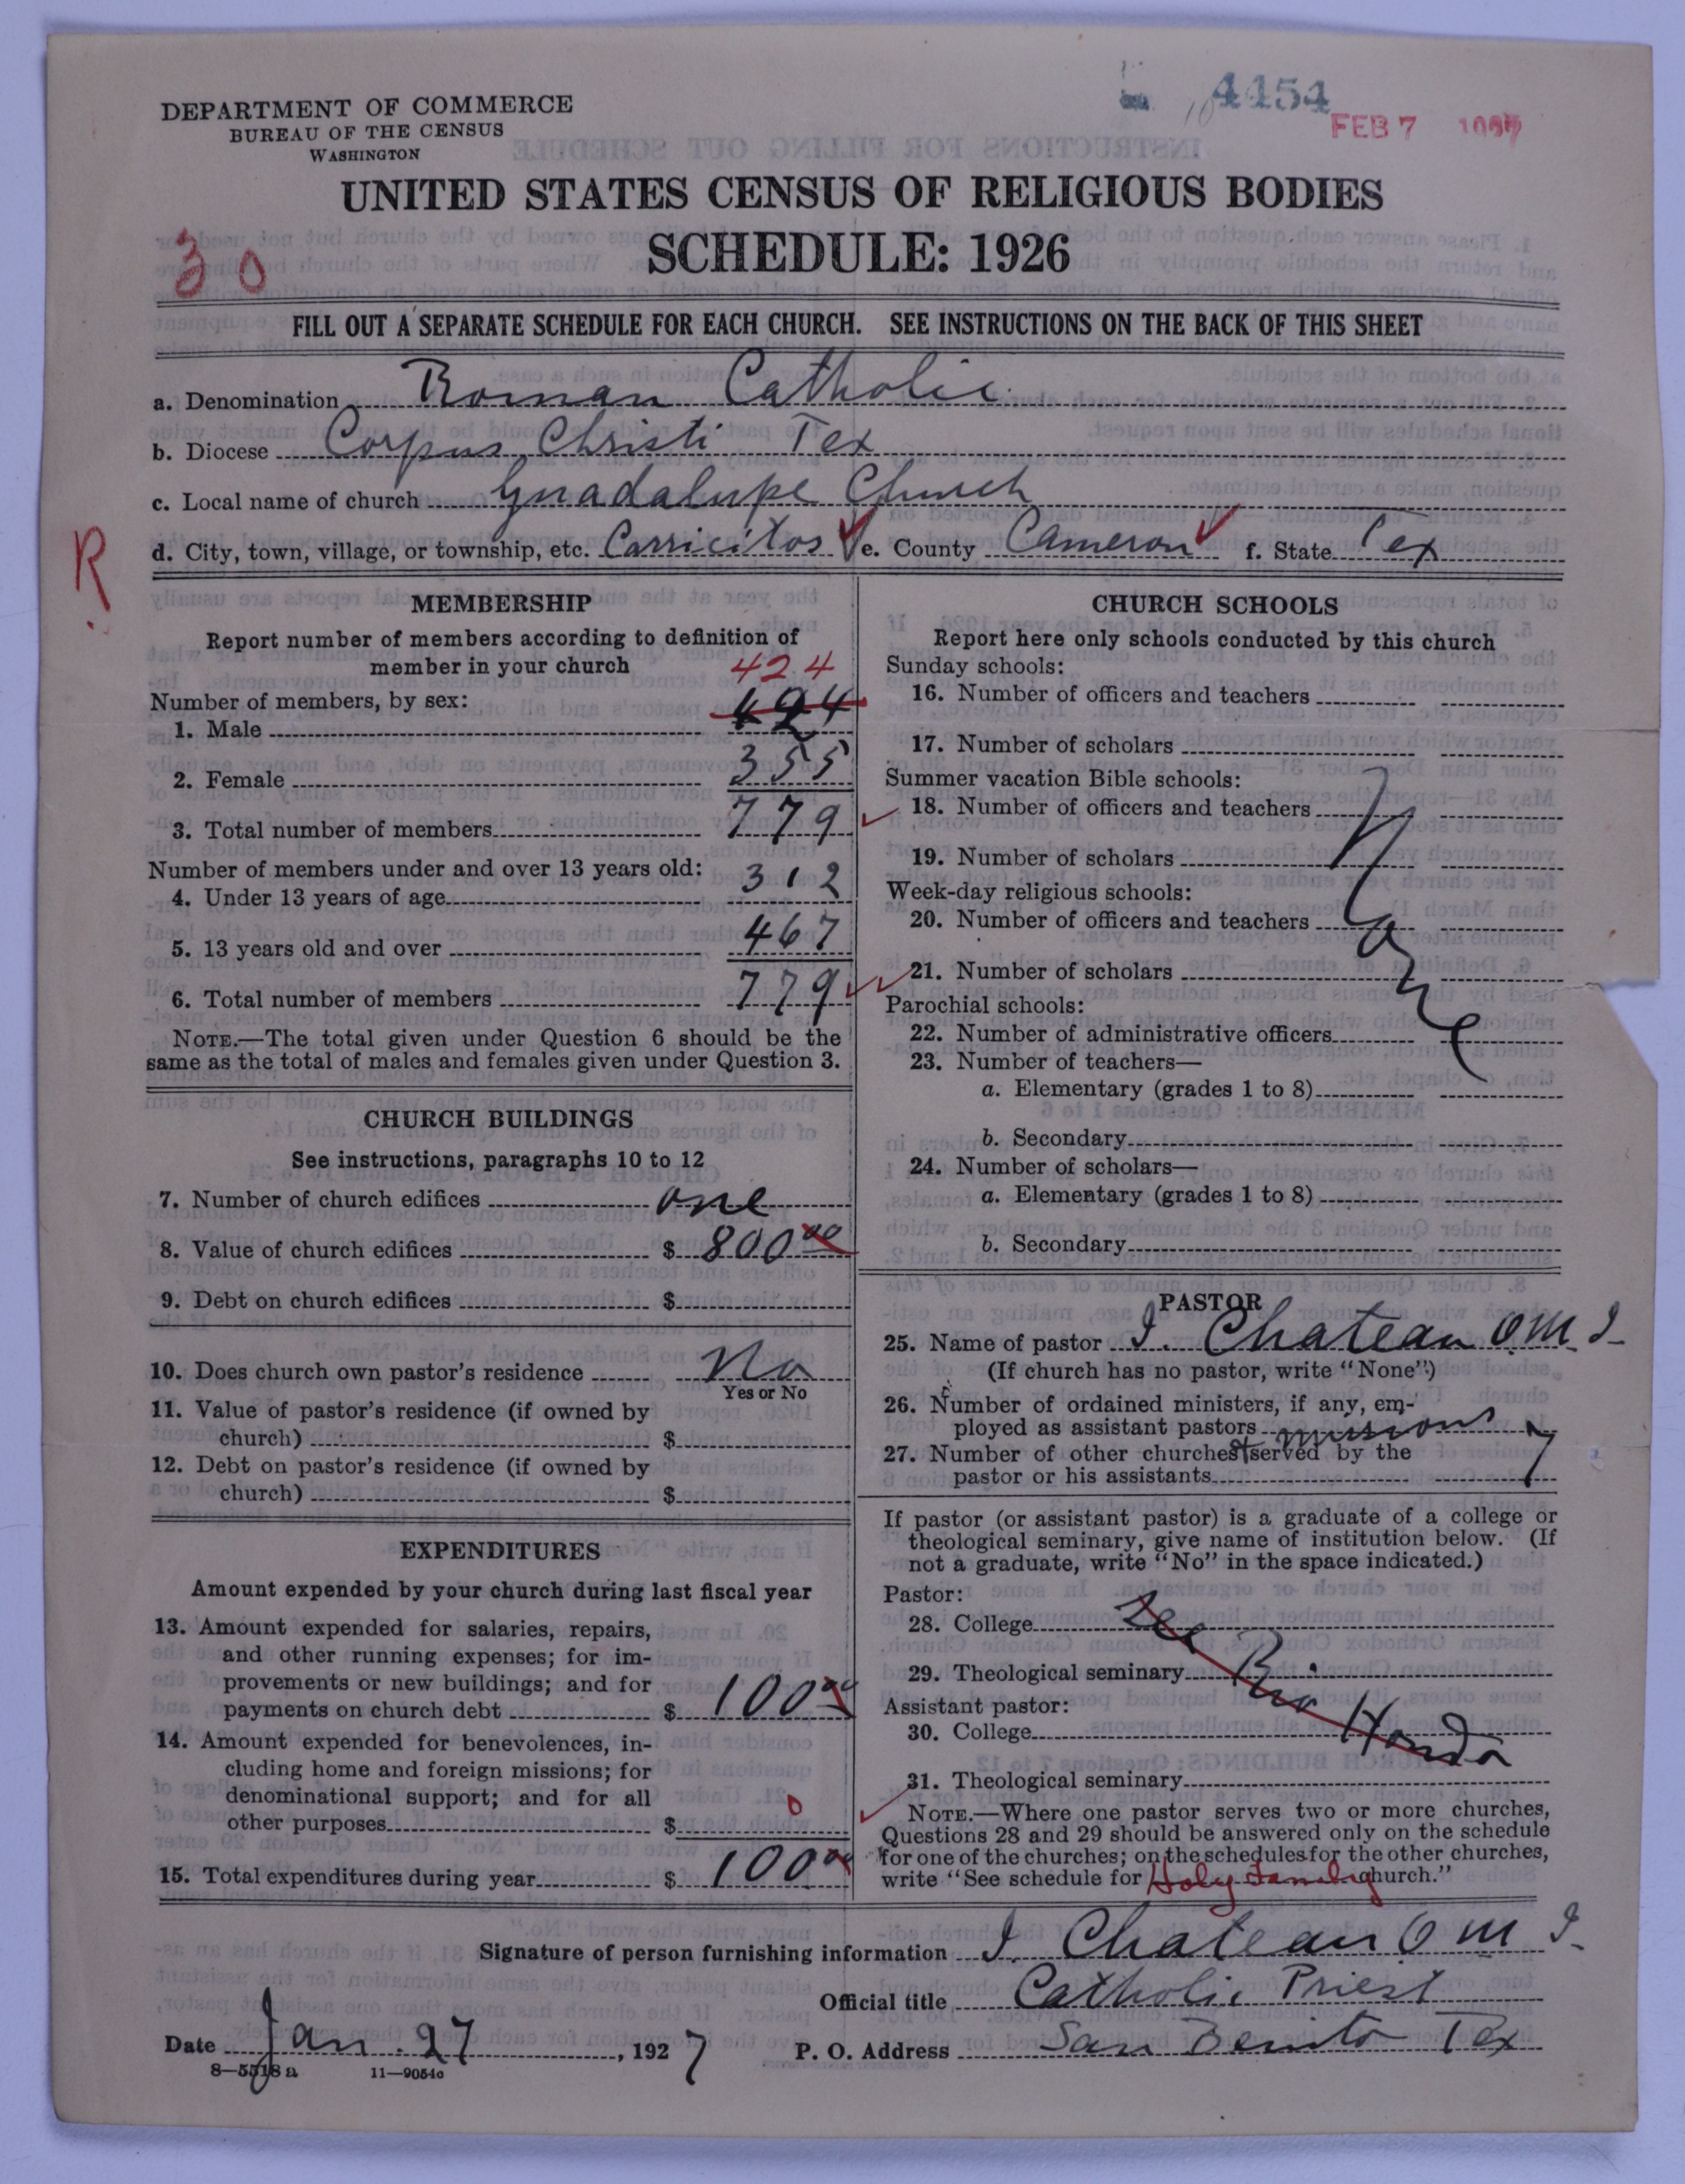 DEPARTMENT OF COMMERCE
BUREAU OF THE CENSUS
WASHINGTON
4454
FEB 7
UNITED STATES CENSUS OF RELIGIOUS BODIES
SCHEDULE: 1926
30
FILL OUT A SEPARATE SCHEDULE FOR EACH CHURCH. SEE INSTRUCTIONS ON THE BACK OF THIS SHEET
a. Denomination Roman Catholic
b. Diocese Corpus Christi Tex
c. Local name of church Guadalupe Church
R
d. City, town, village, or township, etc. Carricitos e. County Cameron f. State Tex
MEMBERSHIP
Report number of members according to definition of
member in your church
424
Number of members, by sex:
1. Male 424
2. Female 355
3. Total number of members 779
Number of members under and over 13 years old:
4. Under 13 years of age 312
5. 13 years old and over 467
6. Total number of members 779
NOTE.—The total given under Question 6 should be the
same as the total of males and females given under Question 3.
CHURCH BUILDINGS
See instructions, paragraphs 10 to 12
7. Number of church edifices one
8. Value of church edifices $ 800 00
9. Debt on church edifices $
10. Does church own pastor's residence No
Yes or No
11. Value of pastor's residence (if owned by
church) $
12. Debt on pastor's residence (if owned by
church) $
EXPENDITURES
Amount expended by your church during last fiscal year
13. Amount expended for salaries, repairs,
and other running expenses; for im-
provements or new buildings; and for
payments on church debt $ 100 00
14. Amount expended for benevolences, in-
cluding home and foreign missions; for
denominational support; and for all
other purposes $ 0
15. Total expenditures during year $ 100 00
CHURCH SCHOOLS
Report here only schools conducted by this church
Sunday schools:
16. Number of officers and teachers
17. Number of scholars
Summer vacation Bible schools:
18. Number of officers and teachers
19. Number of scholars
Week-day religious schools:
20. Number of officers and teachers
21. Number of scholars
Parochial schools:
22. Number of administrative officers
23. Number of teachers—
a. Elementary (grades 1 to 8)
b. Secondary
24. Number of scholars—
a. Elementary (grades 1 to 8)
b. Secondary
None
PASTOR
25. Name of pastor I. Chateau O M I
(If church has no pastor, write "None")
26. Number of ordained ministers, if any, em-
ployed as assistant pastors
missions
27. Number of other churches served by the
pastor or his assistants 7
If pastor (or assistant pastor) is a graduate of a college or
theological seminary, give name of institution below. (If
not a graduate, write "No" in the space indicated.)
Pastor:
28. College See
29. Theological seminary Rio
Assistant pastor:
30. College Hondo
31. Theological seminary
NOTE.—Where one pastor serves two or more churches,
Questions 28 and 29 should be answered only on the schedule
for one of the churches; on the schedules for the other churches,
write "See schedule for Holy Family church."
Signature of person furnishing information I. Chateau O M I
Official title Catholic Priest
Date Jan. 27, 1927
P. O. Address San Benito Tex
8—5518 a 11—9054a